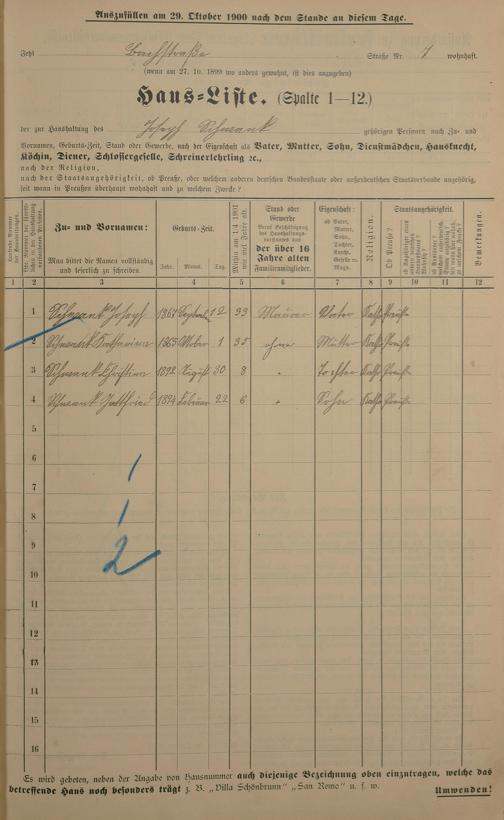 Auszufüllen am 29. Oktober 1900 nach dem Stande an diesem Tage.
Zehl Bachstraße Straße Nr. 7 wohnhaft.
(wenn am 27. 10. 1899 wo anders gewohnt, ist dies anzugeben)
Haus-Liste. (Spalte 1—12.)
der zur Haushaltung des Joseph Schwank gehörigen Personen nach Zu- und
Vornamen, Geburts-Zeit, Stand oder Gewerbe, nach der Eigenschaft als Vater, Mutter, Sohn, Dienstmädchen, Hausknecht,
Köchin, Diener, Schlossergeselle, Schreinerlehrling ꝛc.,
nach der Religion,
nach der Staatsangehörigkeit, ob Preuße, oder welchem anderen deutschen Bundesstaate oder außerdeutschen Staatsverbande angehörig,
seit wann in Preußen überhaupt wohnhaft und zu welchem Zwecke?
Zu- und Vornamen:
Man bittet die Namen vollständig
und leserlich zu schreiben.
Geburts-Zeit.
Jahr. Monat. Tag.
Mithin am 1/4 1901
wie viel Jahre alt.
Stand oder
Gewerbe
der über 16
Jahre alten
Familienmitglieder.
Eigenschaft:
ob Vater,
Mutter,
Sohn,
Tochter,
Knecht,
Geselle ꝛc.
Magd.
Religion.
Staatsangehörigkeit.
Ob Preuße?
Bemerkungen.
1 2 3 4 5 6 7 8 9 10 11 12
1 Schwank Joseph 1867 September 12 33 Maurer Vater Kath. Preuße
2 Schwank Katharina 1865 Oktober 1 35 ohne Mutter Kath. Preuße
3 Schwank Christina 1892 August 30 8 " Tochter Kath. Preuße
4 Schwank Gottfried 1894 Februar 22 6 " Sohn Kath. Preuße
5
6
7
8
9
10
11
12
13
14
15
16
1
1
2
Es wird gebeten, neben der Angabe von Hausnummer auch diejenige Bezeichnung oben einzutragen, welche das
betreffende Haus noch besonders trägt z. B. „Villa Schönbrunn" „San Remo" u. s. w. Umwenden!